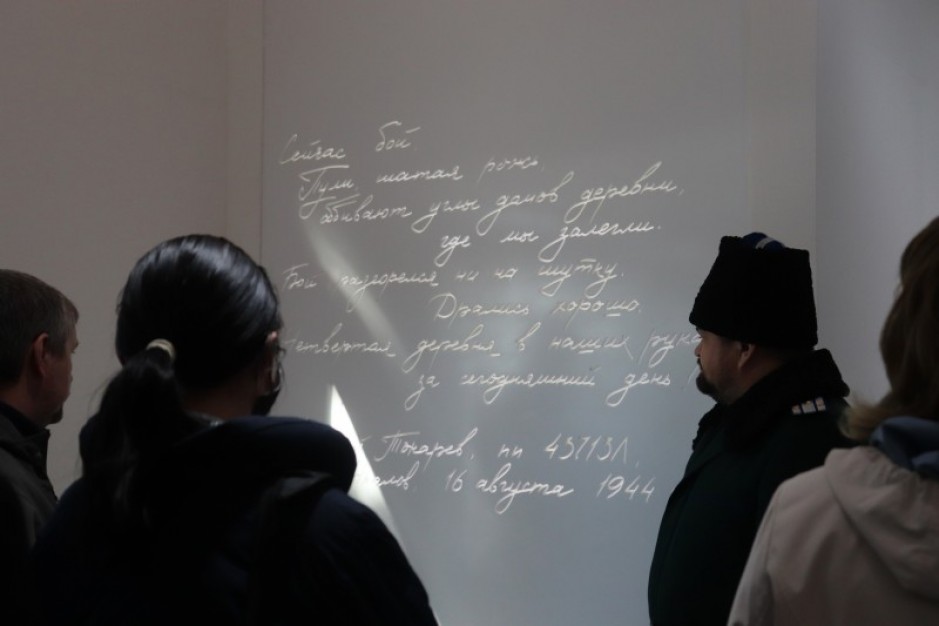 Сейчас бой.
Пули, шатая рожь,
сбивают углы домов деревни,
где мы залегли.
Бой разгорелся ни на шутку.
Дрались хорошо.
четвертая деревня в наших руках
за сегодняшний день
Токарев, пп 43713Л,
16 августа 1944